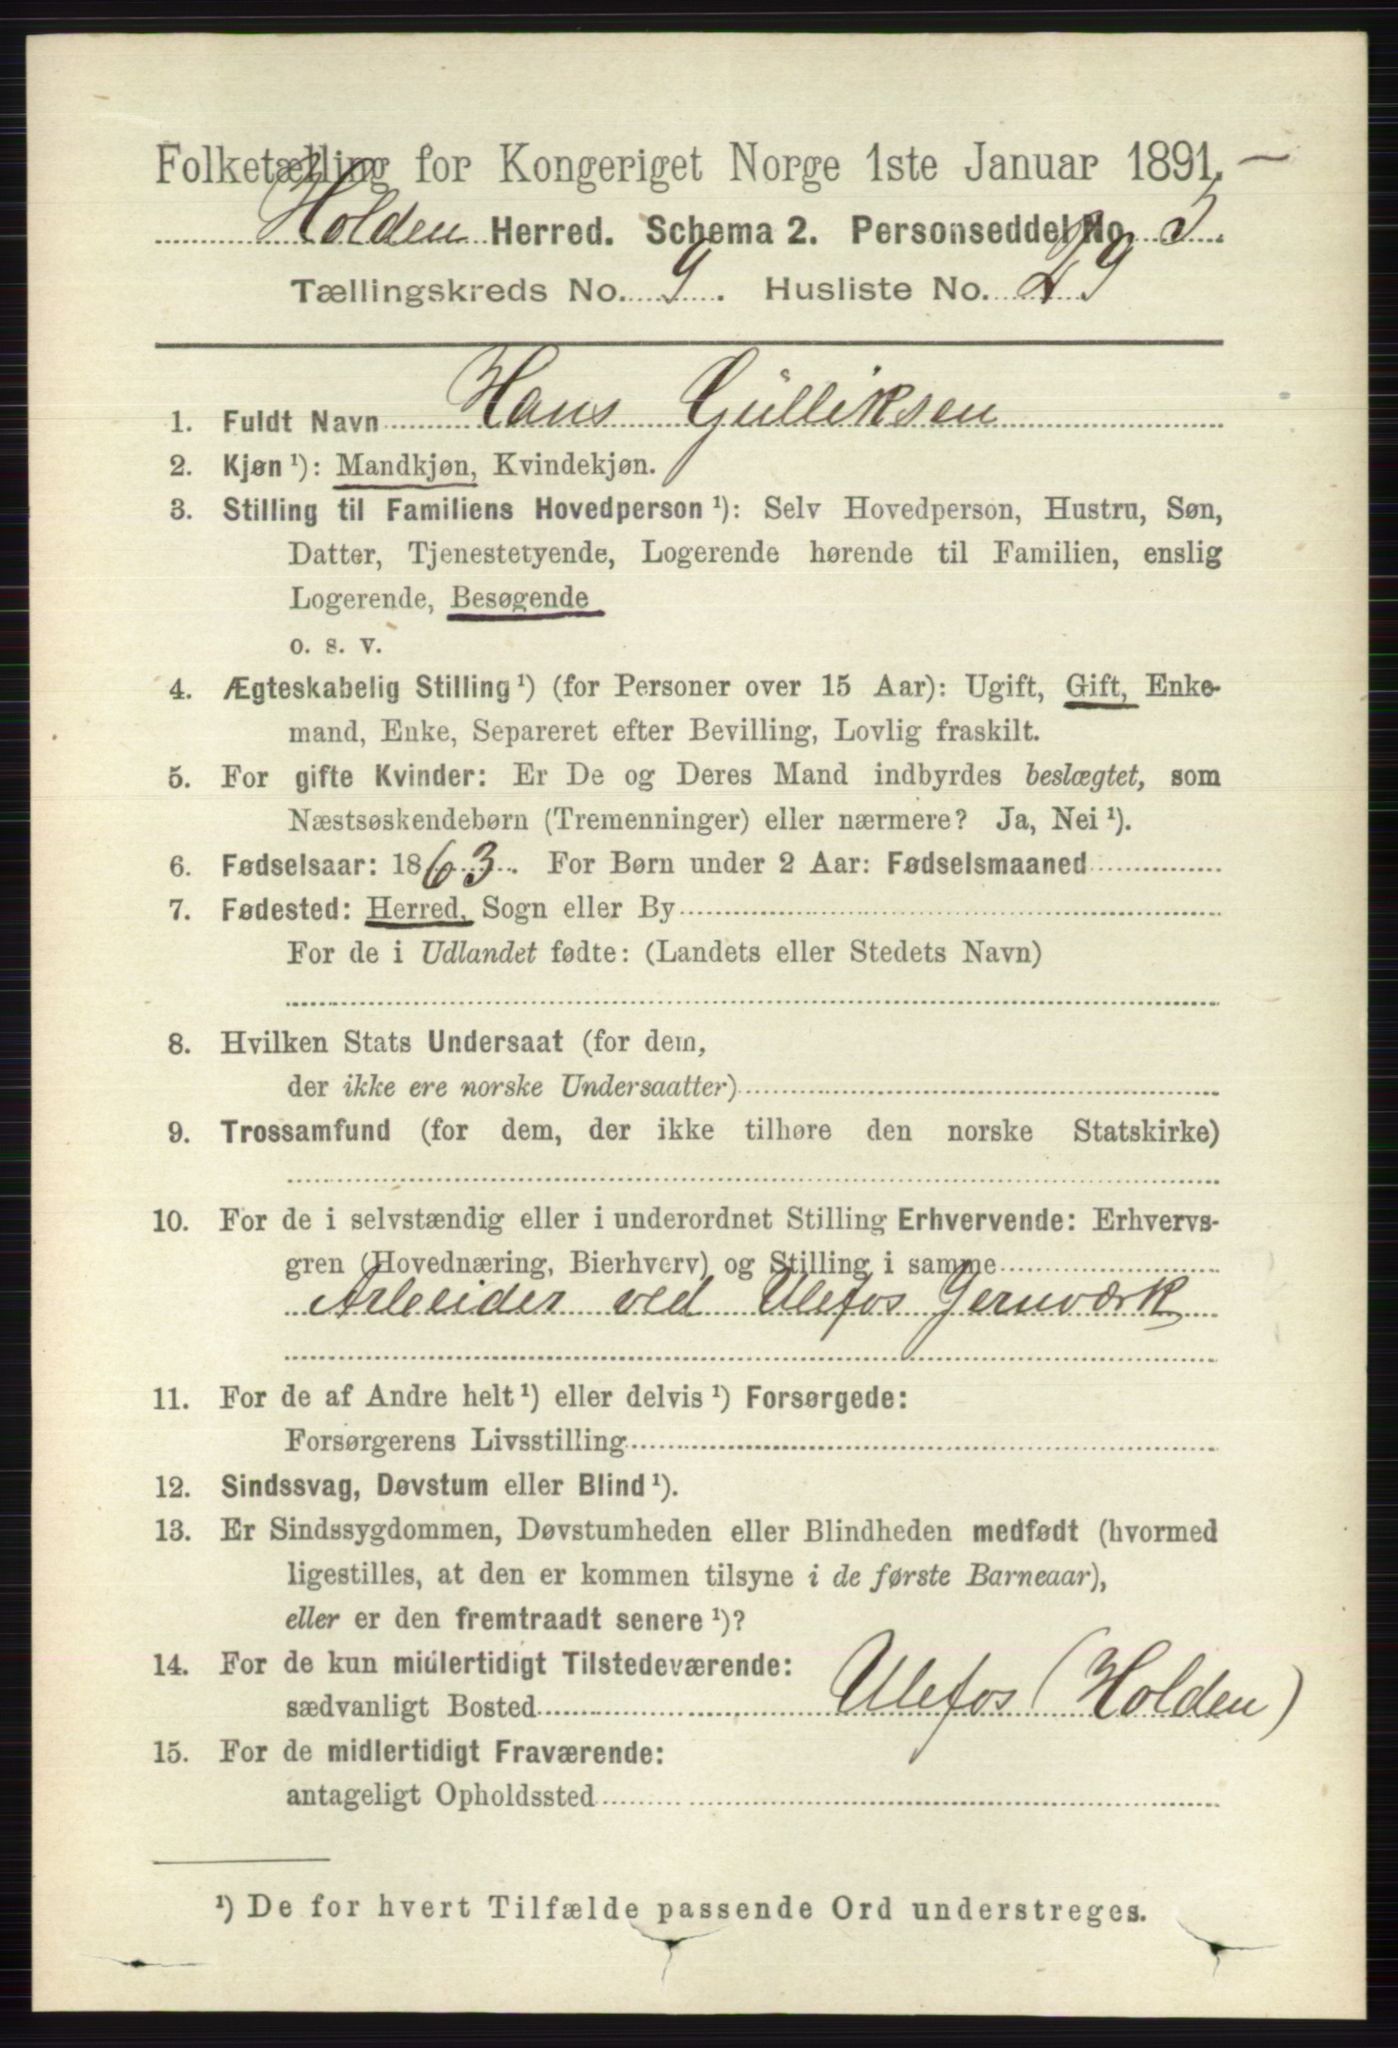 Folketælling for Kongeriget Norge 1ste Januar 1891.
Holden Herred. Schema 2. Personseddel No. 3.
Tællingskreds No. 9. Husliste No. 29
1. Fuldt Navn Hans Gulliksen
2. Kjøn ¹): Mandkjøn, Kvindekjøn.
3. Stilling til Familiens Hovedperson ¹): Selv Hovedperson, Hustru, Søn,
Datter, Tjenestetyende, Logerende hørende til Familien, enslig
Logerende, Besøgende
o. s. v.
4. Ægteskabelig Stilling ¹) (for Personer over 15 Aar): Ugift, Gift, Enke-
mand, Enke, Separeret efter Bevilling, Lovlig fraskilt.
5. For gifte Kvinder: Er De og Deres Mand indbyrdes beslægtet, som
Næstsøskendebørn (Tremenninger) eller nærmere? Ja, Nei ¹).
6. Fødselsaar: 1863. For Børn under 2 Aar: Fødselsmaaned
7. Fødested: Herred, Sogn eller By
For de i Udlandet fødte: (Landets eller Stedets Navn)
8. Hvilken Stats Undersaat (for dem,
der ikke ere norske Undersaatter)
9. Trossamfund (for dem, der ikke tilhøre den norske Statskirke)
10. For de i selvstændig eller i underordnet Stilling Erhvervende: Erhvervs-
gren (Hovednæring, Bierhverv) og Stilling i samme
Arbeider ved Ulefos Jernværk
11. For de af Andre helt ¹) eller delvis ¹) Forsørgede:
Forsørgerens Livsstilling
12. Sindssvag, Døvstum eller Blind ¹).
13. Er Sindssygdommen, Døvstumheden eller Blindheden medfødt (hvormed
ligestilles, at den er kommen tilsyne i de første Barneaar),
eller er den fremtraadt senere ¹)?
14. For de kun midlertidigt Tilstedeværende:
sædvanligt Bosted Ulefos (Holden)
15. For de midlertidigt Fraværende:
antageligt Opholdssted
¹) De for hvert Tilfælde passende Ord understreges.